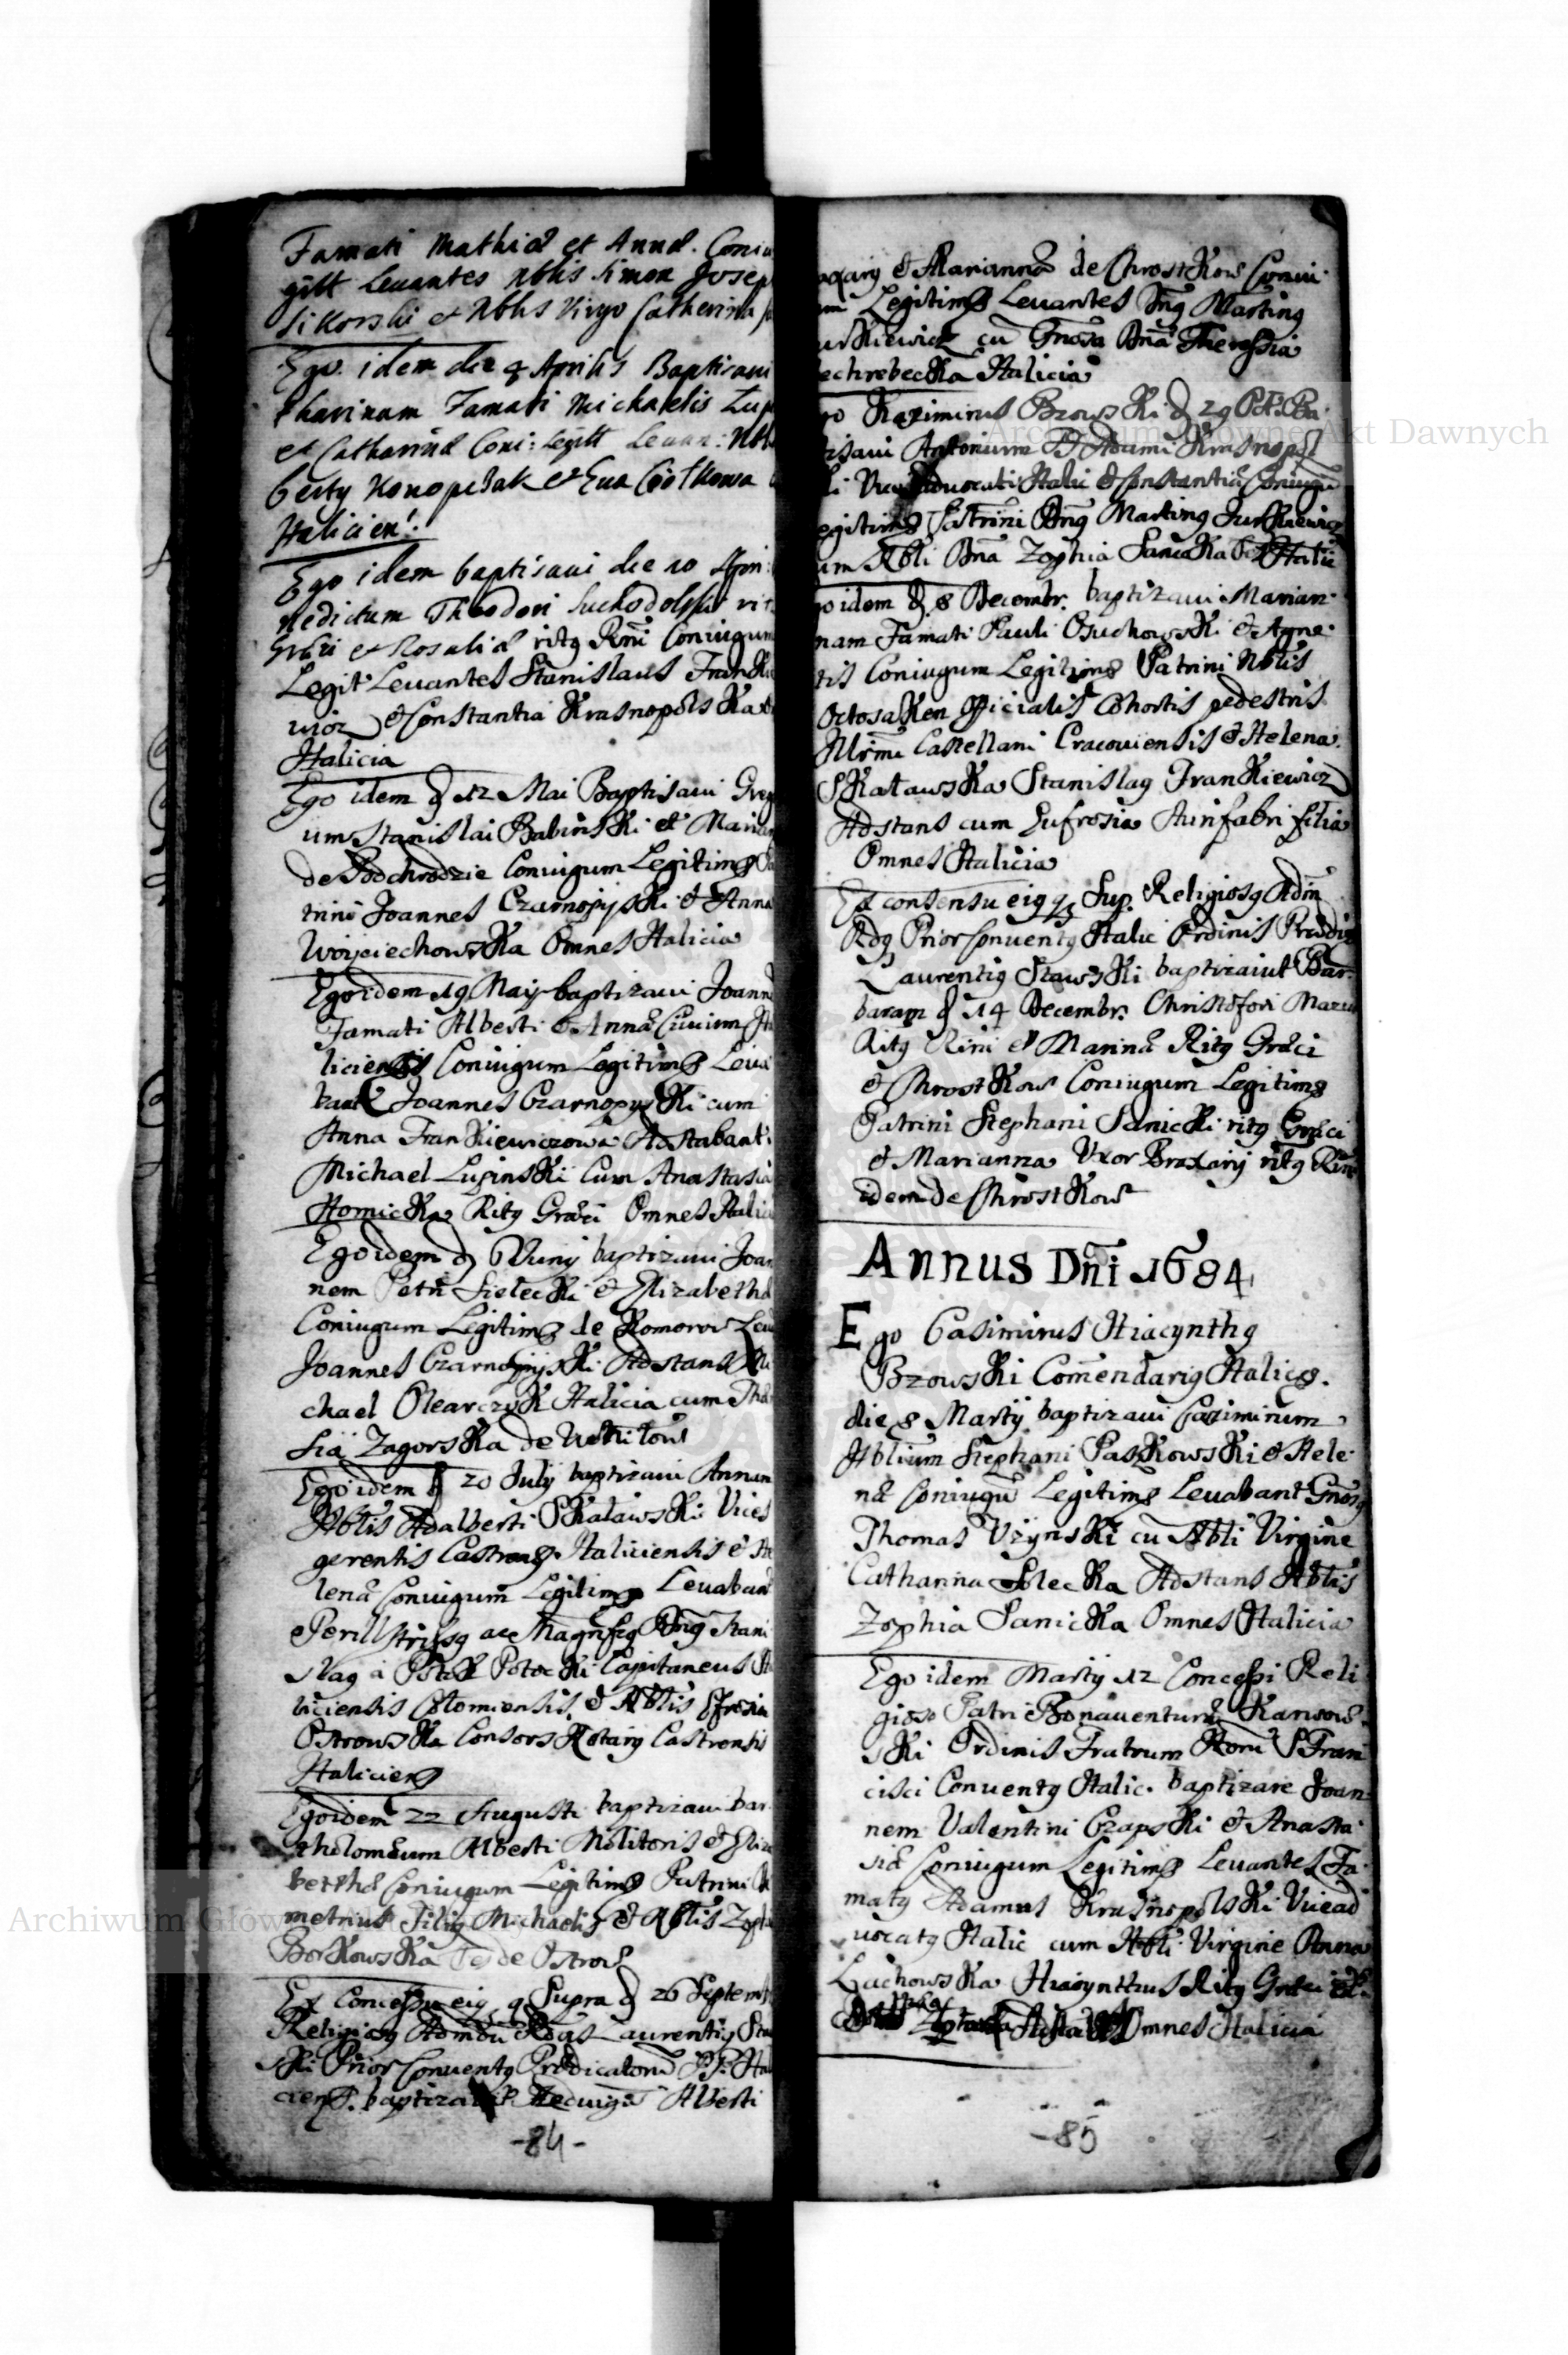 Famati Mathiæ et Annæ Coniu
gitt Leuantes Nblis Simon Joseph
Sikorski et Nblis Virgo Catherina
Ego idem die 4 Aprilis Baptisaui
tharinam Famati Michaelis Lup
et Catharinæ Coni: Legitt Leuan: Nbl
berty Konopczak et Eua Ciołkowa
Halicien:
Ego idem baptisaui die 10 Apri:
nedictum Theodori Suchodolski rit
Græci et Rosaliæ ritq Rñi Coniugum
Legit: Leuantes Stanislaus FranKie
wicz et Constantia KrasnopolsKa
Halicia
Ego idem d 12 Mai Baptisaui Greg
um Stanislai BabinsKi et Marian
de Podchrodzie Coniugum Legitimo
trini Joannes CzarnopysKi et Anna
WoyciechowsKa Omnes Halicia
Ego idem 19 Maij baptizaui Joann
Famati Alberti & Annæ Ciuium Ha
liciensis Coniugum Legitimo Leua
bant Joannes CzarnopysKi cum
Anna FranKiewiczowa Adstabant
Michael LupinsKi Cum Anastasia
HomicKa Ritq Græci Omnes Halicia
Ego idem d 6 Juny baptizaui Joan
nem Petri SielecKi & Elizabethæ
Coniugum Legitimo de Komorow Leu
Joannes CzarnopysKi Adstans Mi
chael OlearczyK Halicia cum The
sia ZagorsKa de
Ego idem d 20 July baptizaui Annam
Nblis Adalberti SKalawsKi Vices
gerentis Castren Haliciensis & He
lenæ Coniugum Legitimo Leuabant
Perillstrisq ac Magnifcq Dnq Stani
slaq à PotoK PotocKi Capitaneus Ha
liciensis Colomiensis & Nblis Efrosia
OstrowsKa Consors Notarij Castrensis
Haliciens
Ego idem 22 Augusti baptizaui bar
tholomæum Alberti Molitoris & Eliza
bethæ Coniugum Legitimo Patrini De
metrius Filiq Michaelis & Nblis Zoph
BorKowsKa de Ostrow
Ex Concessu eiq q Supra d 26 Septemb
Religiosq Admdu Rdq Laurentiq Sta
sKi Prior Conuentq Prædicatoru P.P. Ha
ciens. baptizauit Heduigã Alberti
-84-
axary & Mariannæ de ChrostKow Coniu
um Legitimo Leuantes Dnq Martinq
urKiewicz cu Gnosa Dna Theressia
echrebecKa Halicia
go Kazimirus BzowsKi d 29 Oct. Ba
tisaui Antonium D Adami Krasnopol
Ki Viceaduocati Halic & Constantiæ Coniugu
egitimo Patrini Dnq Martinq JurKiewicz
um Nbli Dna Zophia SanicKa Halic
go idem d 8 Decembr. baptizaui Marian
nam Famati Pauli OsuchowsKi & Agne
tis Coniugum Legitimo Patrini Nblis
OctosaKen Officialis Cohortis pedestris
Illrimi Castellani Cracouiensis & Helena
SKalawsKa Stanislaq FranKiewicz
Adstans cum Eufrosia Aurifabri filia
Omnes Halicia
Ex consensu eiq q Sup. Religiosq Adm
Rdq Prior Conuentq Halic Ordinis Prædic
Laurentiq StawsKi baptizauit Bar
baram d 14 Decembr. Christofori Mazur
Ritq Rñi & Marinæ Ritq Græci
& ChrostKow Coniugum Legitimo
Patrini Stephani SanicKi ritq Græci
& Marianna Vxor Braxarij ritq Rñi
idem de ChrostKow
Annus Dñi 1684
Ego Casimirus Hiacynthq
BzowsKi Comendariq Halico.
die 8 Martij baptizaui Cazimirum
Nblium Stephani PasKowsKi & Hele
næ Coniugu Legitimo Leuabant Gnosq
Thomas VzynsKi cu Nbli Virgine
Catharina SolecKa Adstans Nblis
Zophia SanicKa Omnes Halicia
Ego idem Martij 12 Concessi Reli
gioso Patri Bonauenturæ Karsow
sKi Ordinis Fratrum Noru S Fran
cisci Conuentq Halic. baptizare Joan
nem Valentini CzapsKi & Anasta
siæ Coniugum Legitimo Leuantes Fa
matq Adamus KrasnopolsKi Vicead
uocatq Halic cum Nbli Virgine Anna
LachowsKa Hiacynthus Ritq Græci
Omnes Halicia
-85
Archiwum Główne Akt Dawnych